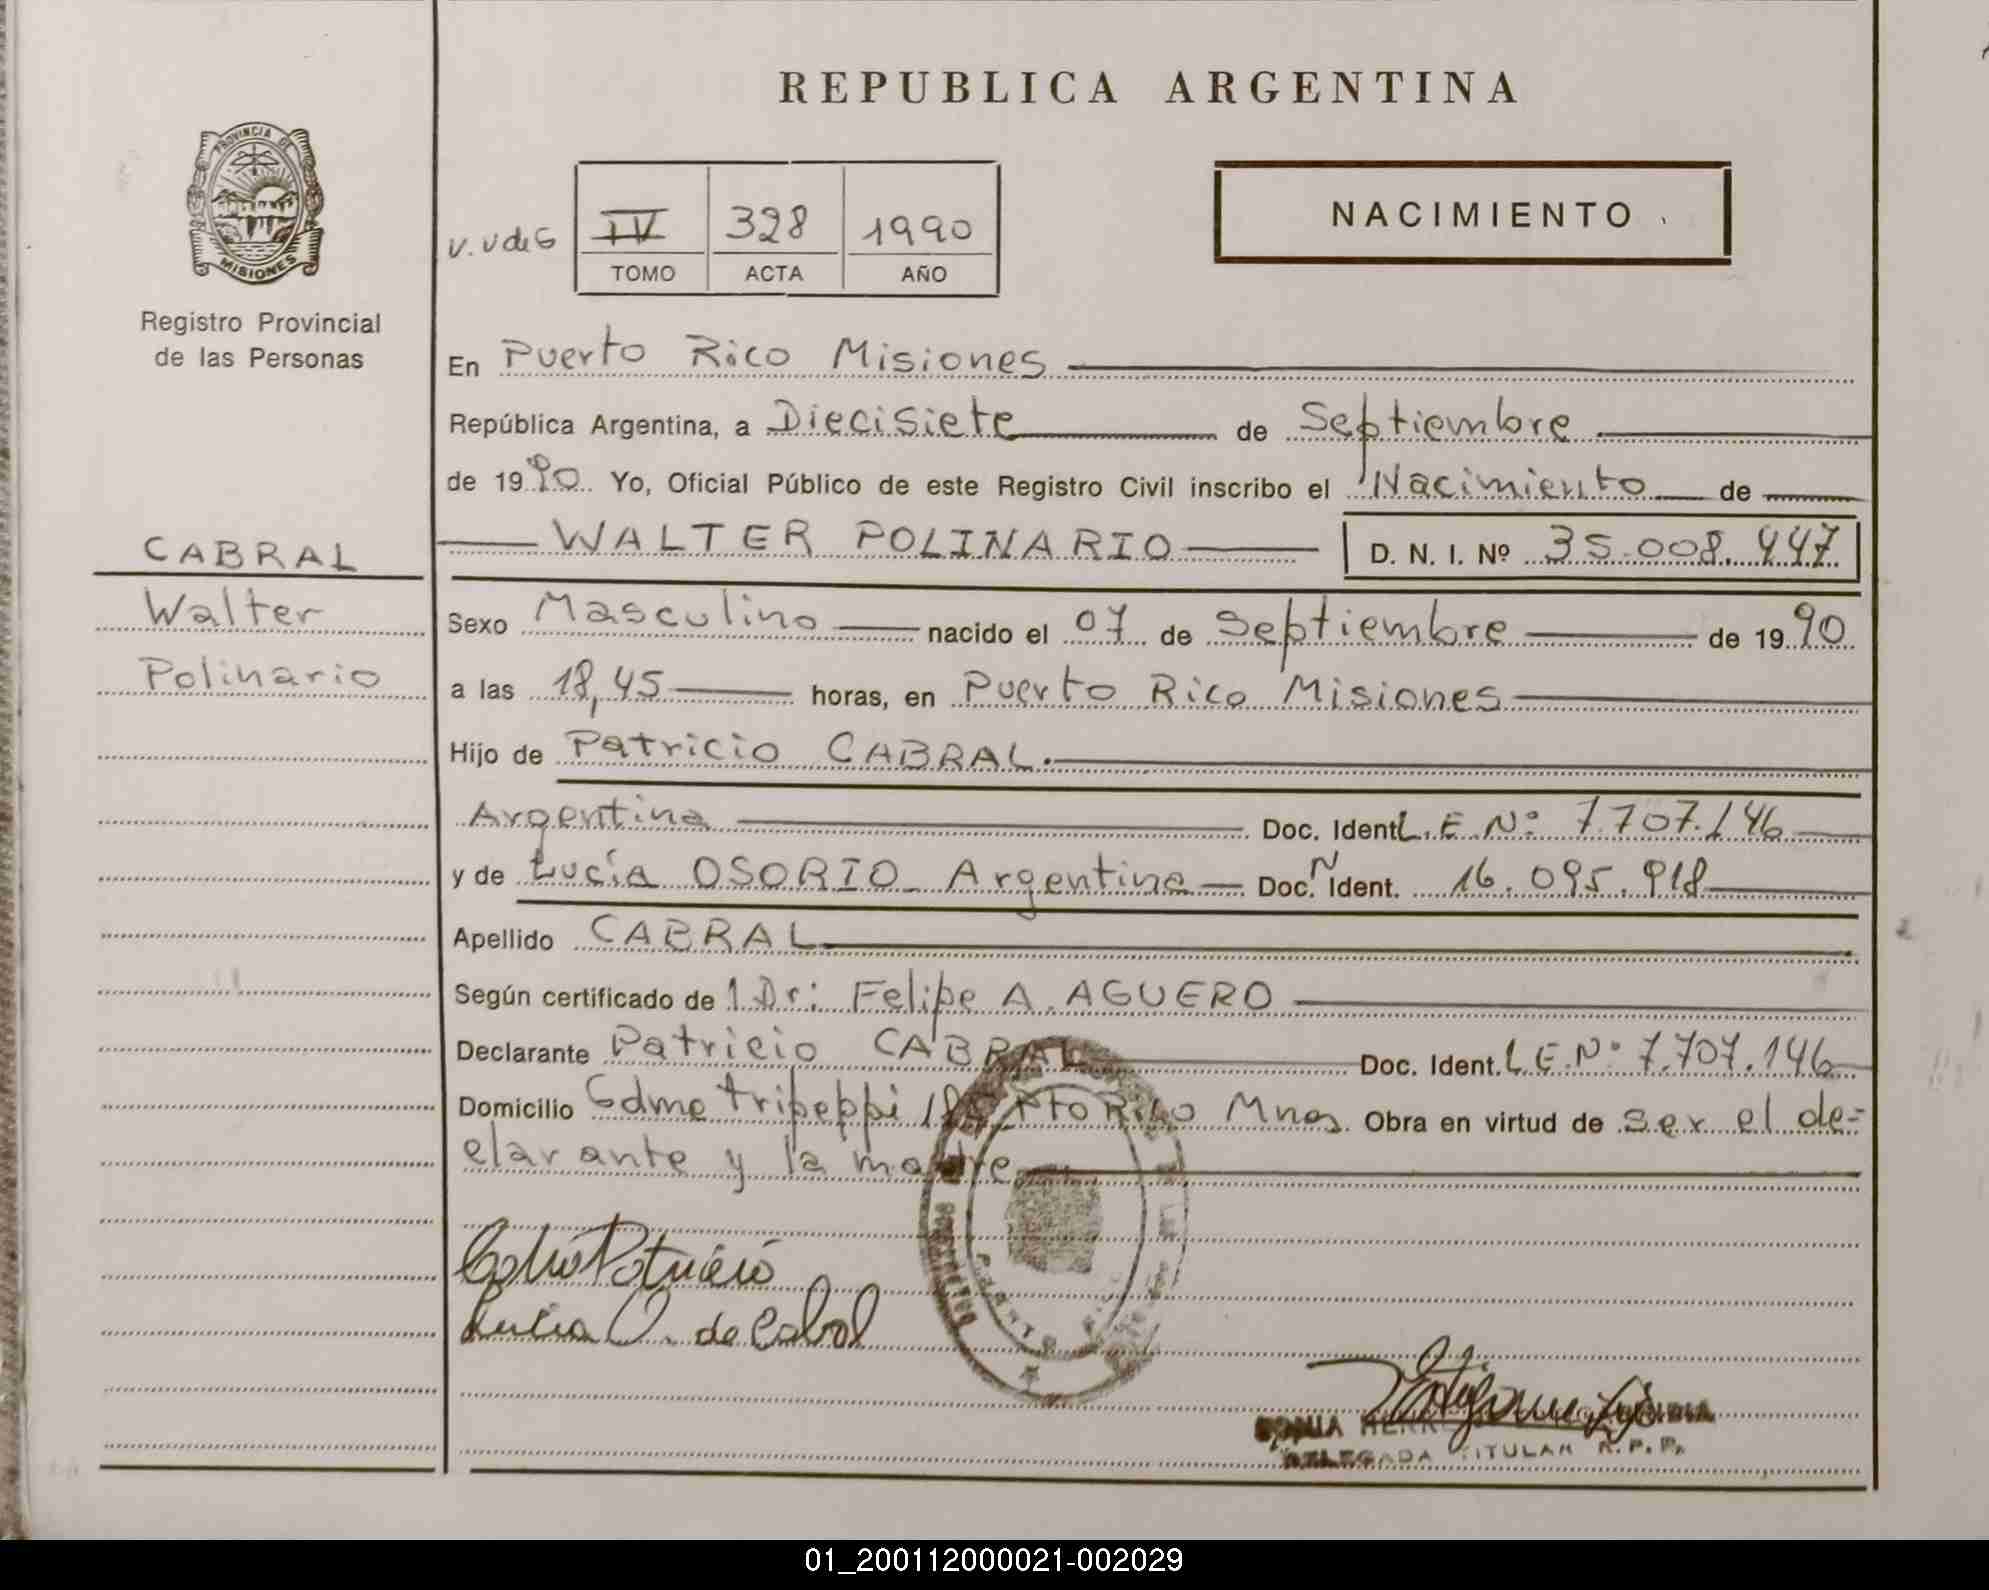 REPUBLICA ARGENTINA
PROVINCIA DE
MISIONES
Registro Provincial
de las Personas
IV 328 1990
TOMO ACTA AÑO
NACIMIENTO
En Puerto Rico Misiones
República Argentina, a Diecisiete de Septiembre
de 1990. Yo, Oficial Público de este Registro Civil inscribo el Nacimiento de
WALTER POLINARIO D. N. I. Nº 35.008.447
CABRAL
Walter
Polinario
Sexo Masculino nacido el 07 de Septiembre de 1990
a las 18,45 horas, en Puerto Rico Misiones
Hijo de Patricio CABRAL.
Argentina Doc. Ident L.E.Nº 7.707.146
y de Lucía OSORIO Argentina Doc. N Ident. 16.095.918
Apellido CABRAL
Según certificado de 1 Dr: Felipe A. AGUERO
Declarante Patricio CABRAL Doc. Ident. L.E.Nº 7.707.146
Domicilio tripeppi Pto Rico Mnes. Obra en virtud de ser el de=
clarante y la madre
Patricio
Lucia O. de Cabral
DELEGADA TITULAR R. P. P.
01_200112000021-002029